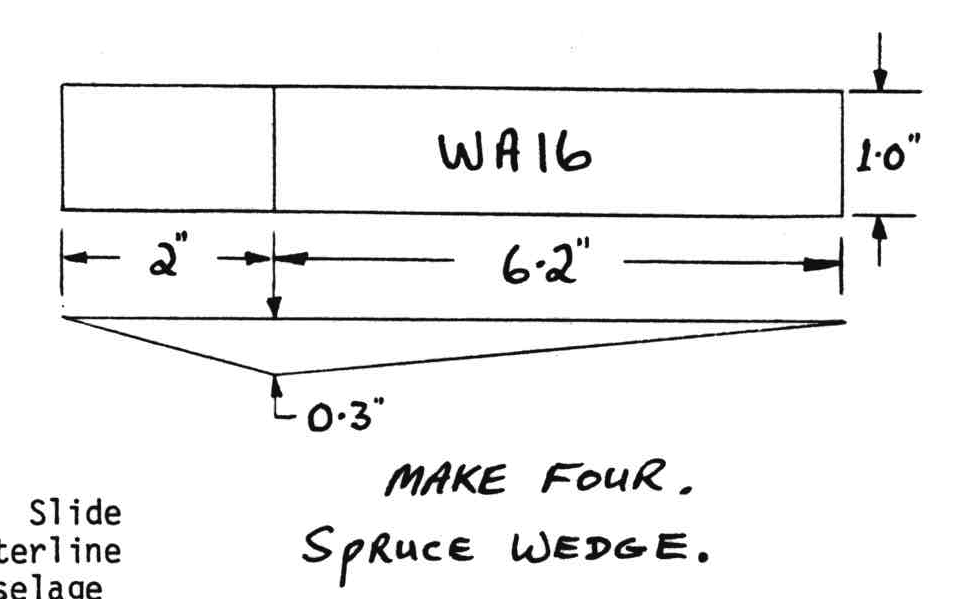 WA16
1.0"
2"
6.2"
0.3"
MAKE FOUR.
SPRUCE WEDGE.
Slide
terline
selage